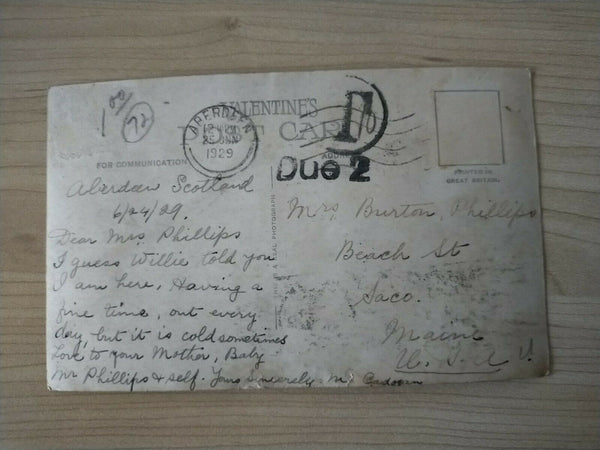 1 00
72
VALENTINE'S
POST CARD
ABERDEEN
1929
FOR COMMUNICATION
ADDRESS
Due 2
PRINTED IN
GREAT BRITAIN.
Aberdeen Scotland
6/24/29.
Dear Mrs Phillips
I guess Willie told you
I am here, Having a
fine time, out every
day, but it is cold sometimes
Love to your Mother, Baby
Mr Phillips & self. Yours Sincerely M
REAL PHOTOGRAPH
Mrs Burton, Phillips
Beach St
Saco.
Maine
U.S.A